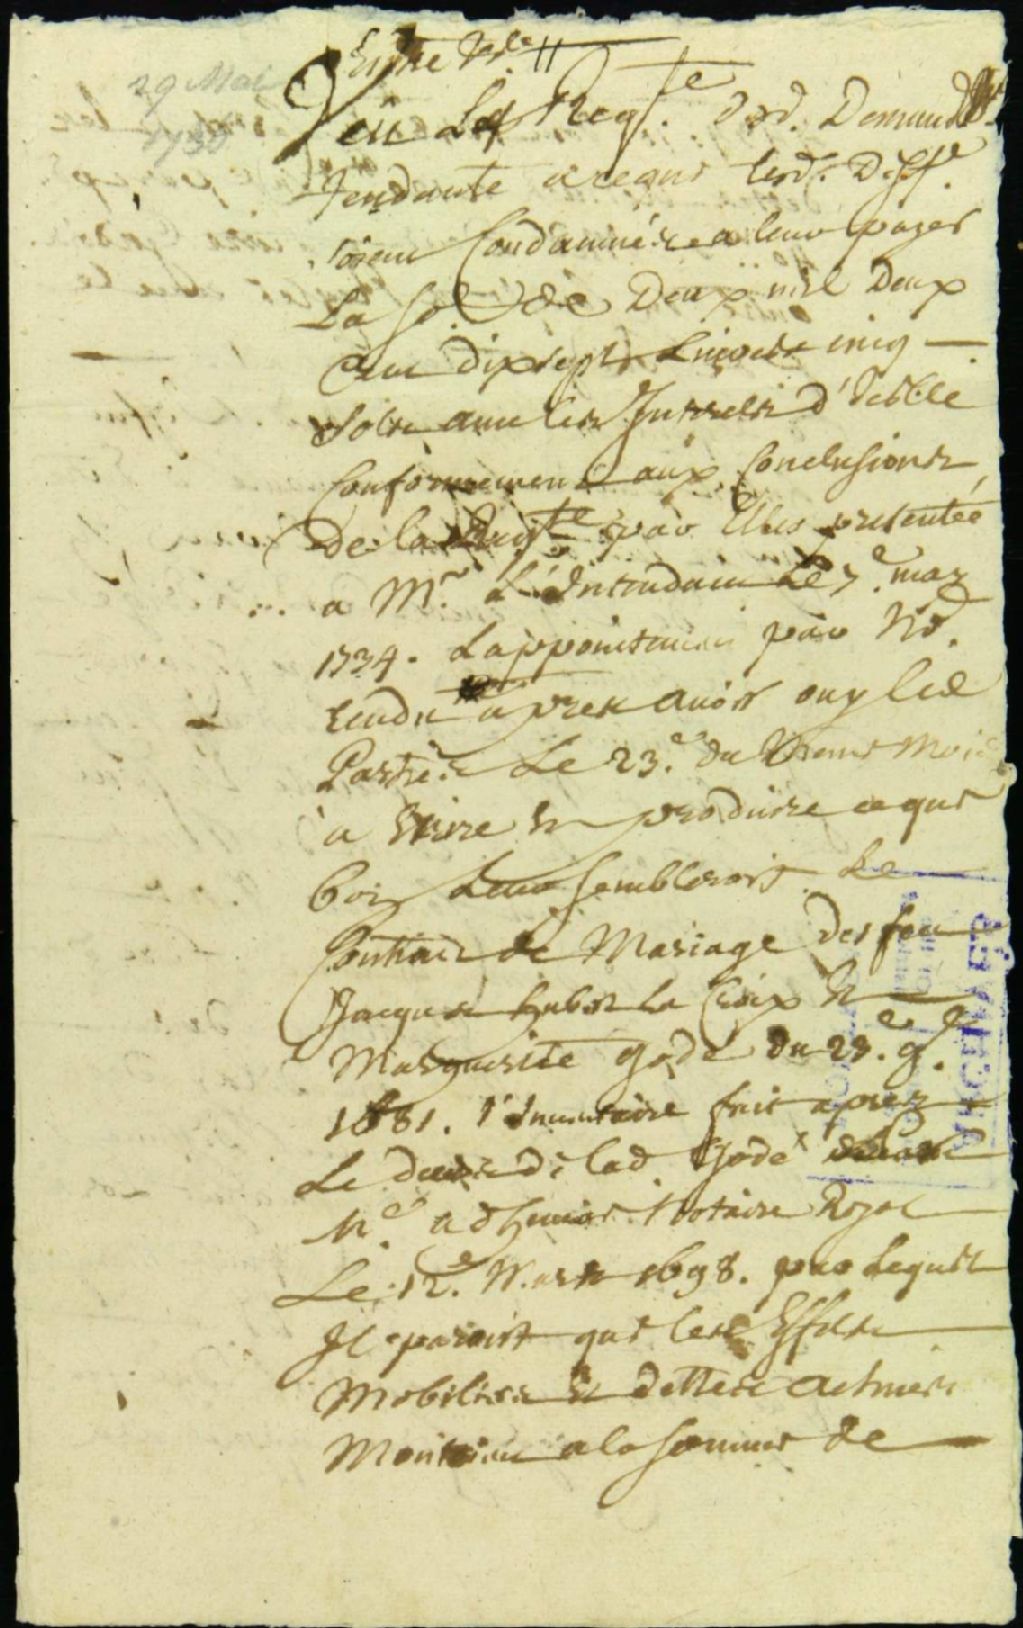 29 Mai
1738
Entre
Veu La Reqte desd. Demandrs
Tendante a ceque lesd. Deffrs
soient Condamnés a leur payer
La So.e de Deux mil Deux
Cent dix sept Livres cinq
sols avec les Interests d'Icelle
Conformement aux Conclusions
De la Reqte par Elles presentée
a Mr. L'Intendant Le 7e. may
1734. Lappointement par Nd.
rendu apres avoir ouy les
Parties Le 23e. du mesme Mois
a Ecrire Et produire ce que
bon Leur sembleroit Le
Contract de Mariage des feu
Jacques hubert La Croix Et
Marguerite godé du 23e. 9e.
1681. l'Inventaire fait aprez
Le deceds de lad Godé devant
Me. adhemar Notaire Royal
Le 12e. Mars 1698. par Lequel
Il paroist que les Effets
Mobiliers Et dettes actives
Montoient a la somme de
ARCHIVES